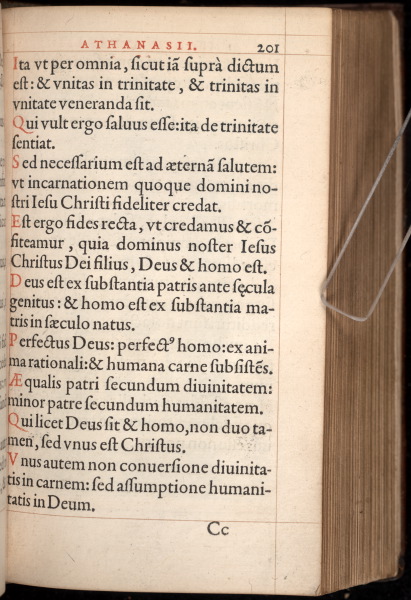 ATHANASII. 201
Ita vt per omnia, ſicut iã ſuprà dictum
eſt: & vnitas in trinitate, & trinitas in
vnitate veneranda ſit.
Qui vult ergo ſaluus eſſe: ita de trinitate
ſentiat.
Sed neceſſarium eſt ad æternã ſalutem:
vt incarnationem quoque domini no-
ſtri Ieſu Chriſti fideliter credat.
Eſt ergo fides recta, vt credamus & cõ-
fiteamur, quia dominus noſter Ieſus
Chriſtus Dei filius, Deus & homo eſt.
Deus eſt ex ſubſtantia patris ante ſęcula
genitus: & homo eſt ex ſubſtantia ma-
tris in ſæculo natus.
Perfectus Deus: perfectꝰ homo: ex ani-
ma rationali: & humana carne ſubſiſtẽs.
Æqualis patri ſecundum diuinitatem:
minor patre ſecundum humanitatem.
Qui licet Deus ſit & homo, non duo ta-
men, ſed vnus eſt Chriſtus.
Vnus autem non conuerſione diuinita-
tis in carnem: ſed aſſumptione humani-
tatis in Deum.
Cc